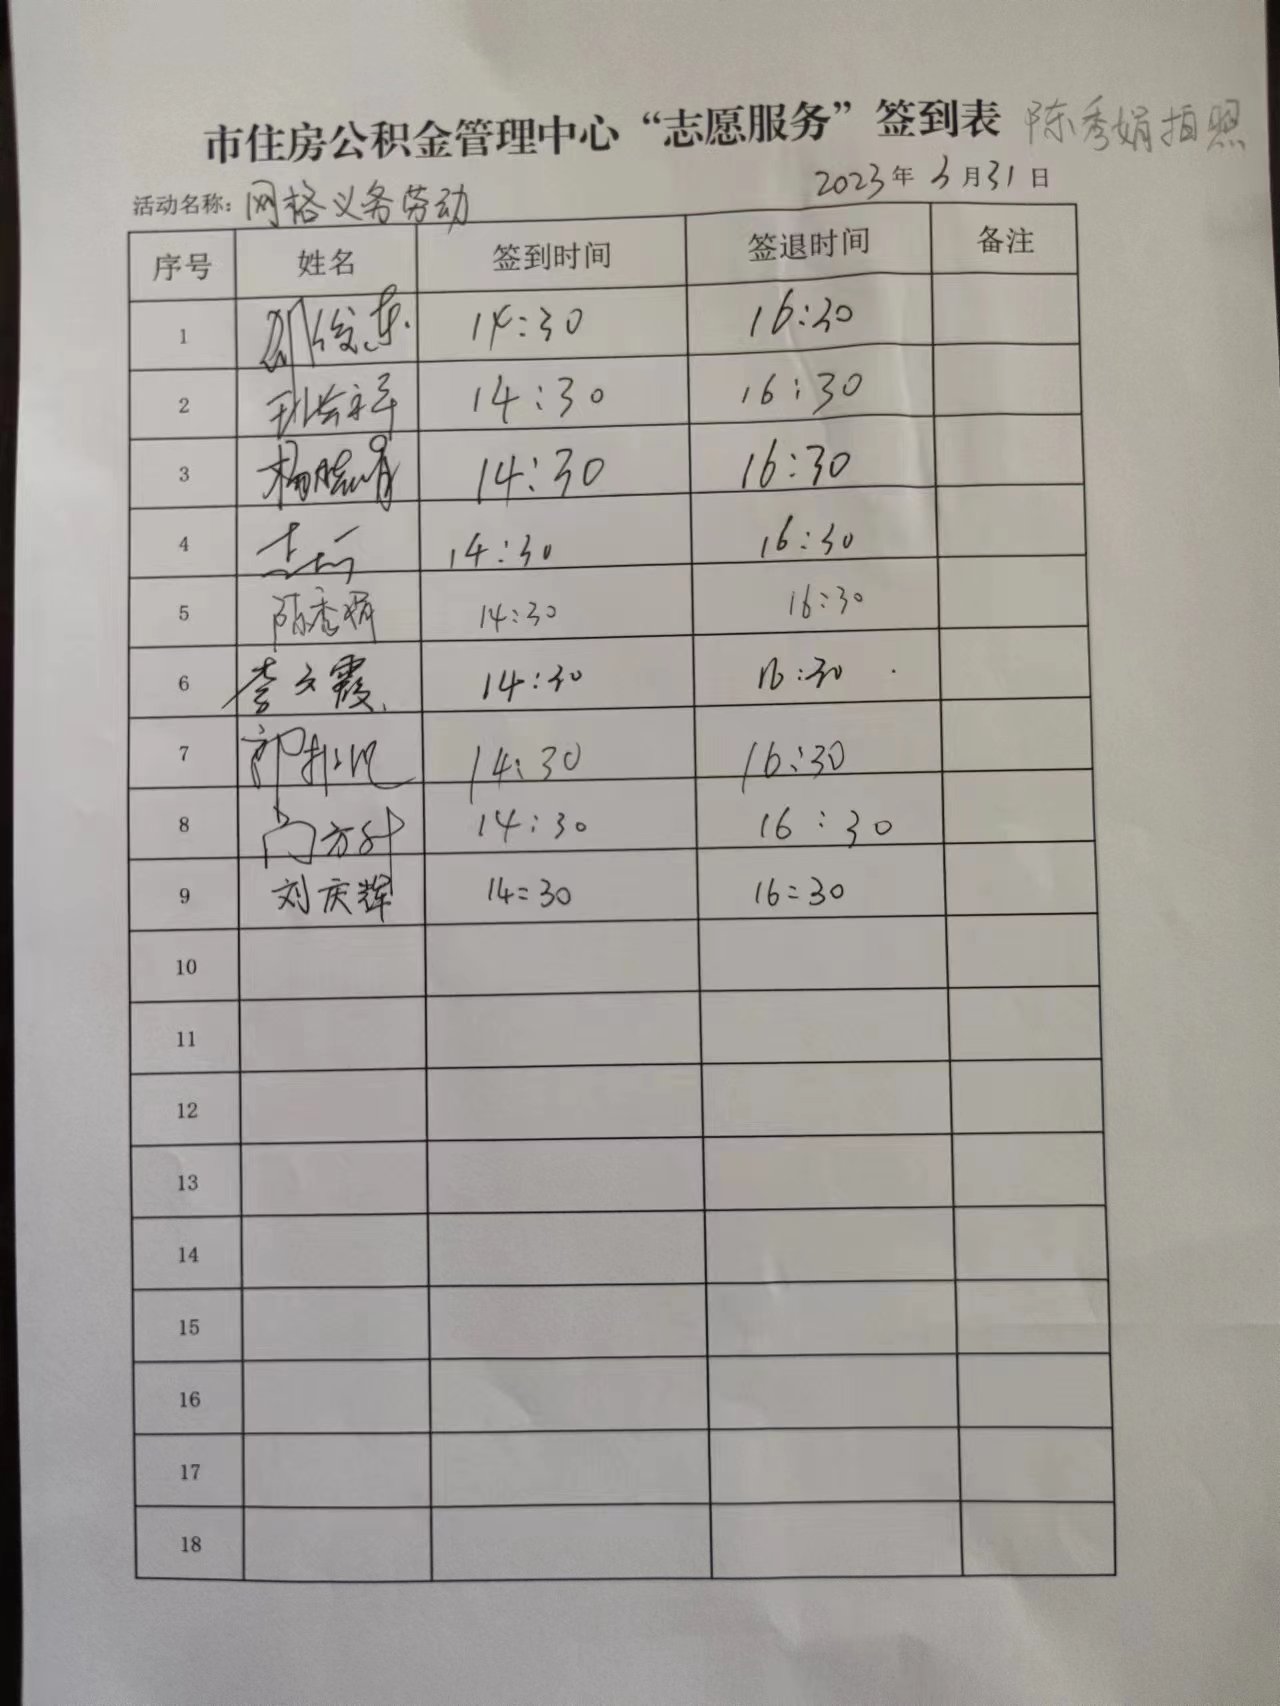 市住房公积金管理中心“志愿服务”签到表 陈秀娟拍照
活动名称：网格义务劳动 2023年3月31日
序号 姓名 签到时间 签退时间 备注
1 14:30 16:30
2 14:30 16:30
3 杨晓娟 14:30 16:30
4 14:30 16:30
5 陈秀娟 14:30 16:30
6 李文霞 14:30 16:30
7 14:30 16:30
8 14:30 16:30
9 刘庆辉 14:30 16:30
10
11
12
13
14
15
16
17
18